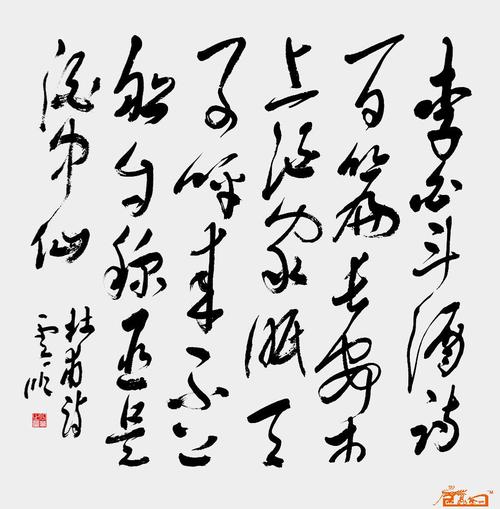 李白斗酒诗
百篇长安市
上酒家眠天
子呼来不上
船自称臣是
酒中仙
杜甫诗